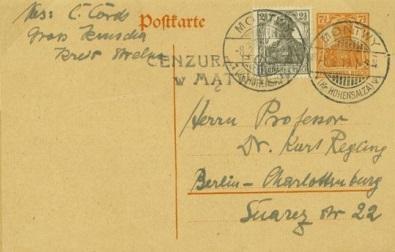 Abs: C. Cords
Gross
Kreis Strelno
Postkarte
2½ 2½
7½ 7½
MONTWY
(Kr. HOHENSALZA)
MONTWY
(Kr. HOHENSALZA)
CENZURA
w MĄT
Herrn Professor
Dr. Kurt Regling
Berlin-Charlottenburg
Suarez Str 22